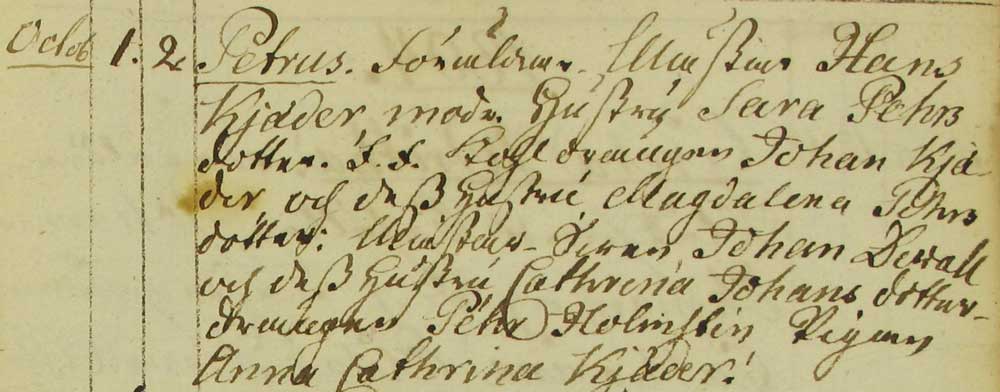 Octob 1. 2. Petrus. Föräldrar. Mästar Hans
Kjäder, modr. Hustru Sara Pehrs
dotter. F. F. Kohldrängen Johan Kjä-
der och dess Hustru Magdalena Pehrs
dotter: Mästar-Sven Johan Dewall
och dess Hustru Cathrina Johans dotter-
drängen Pehr Holmsten Pigan
Anna Cathrina Kjäder.